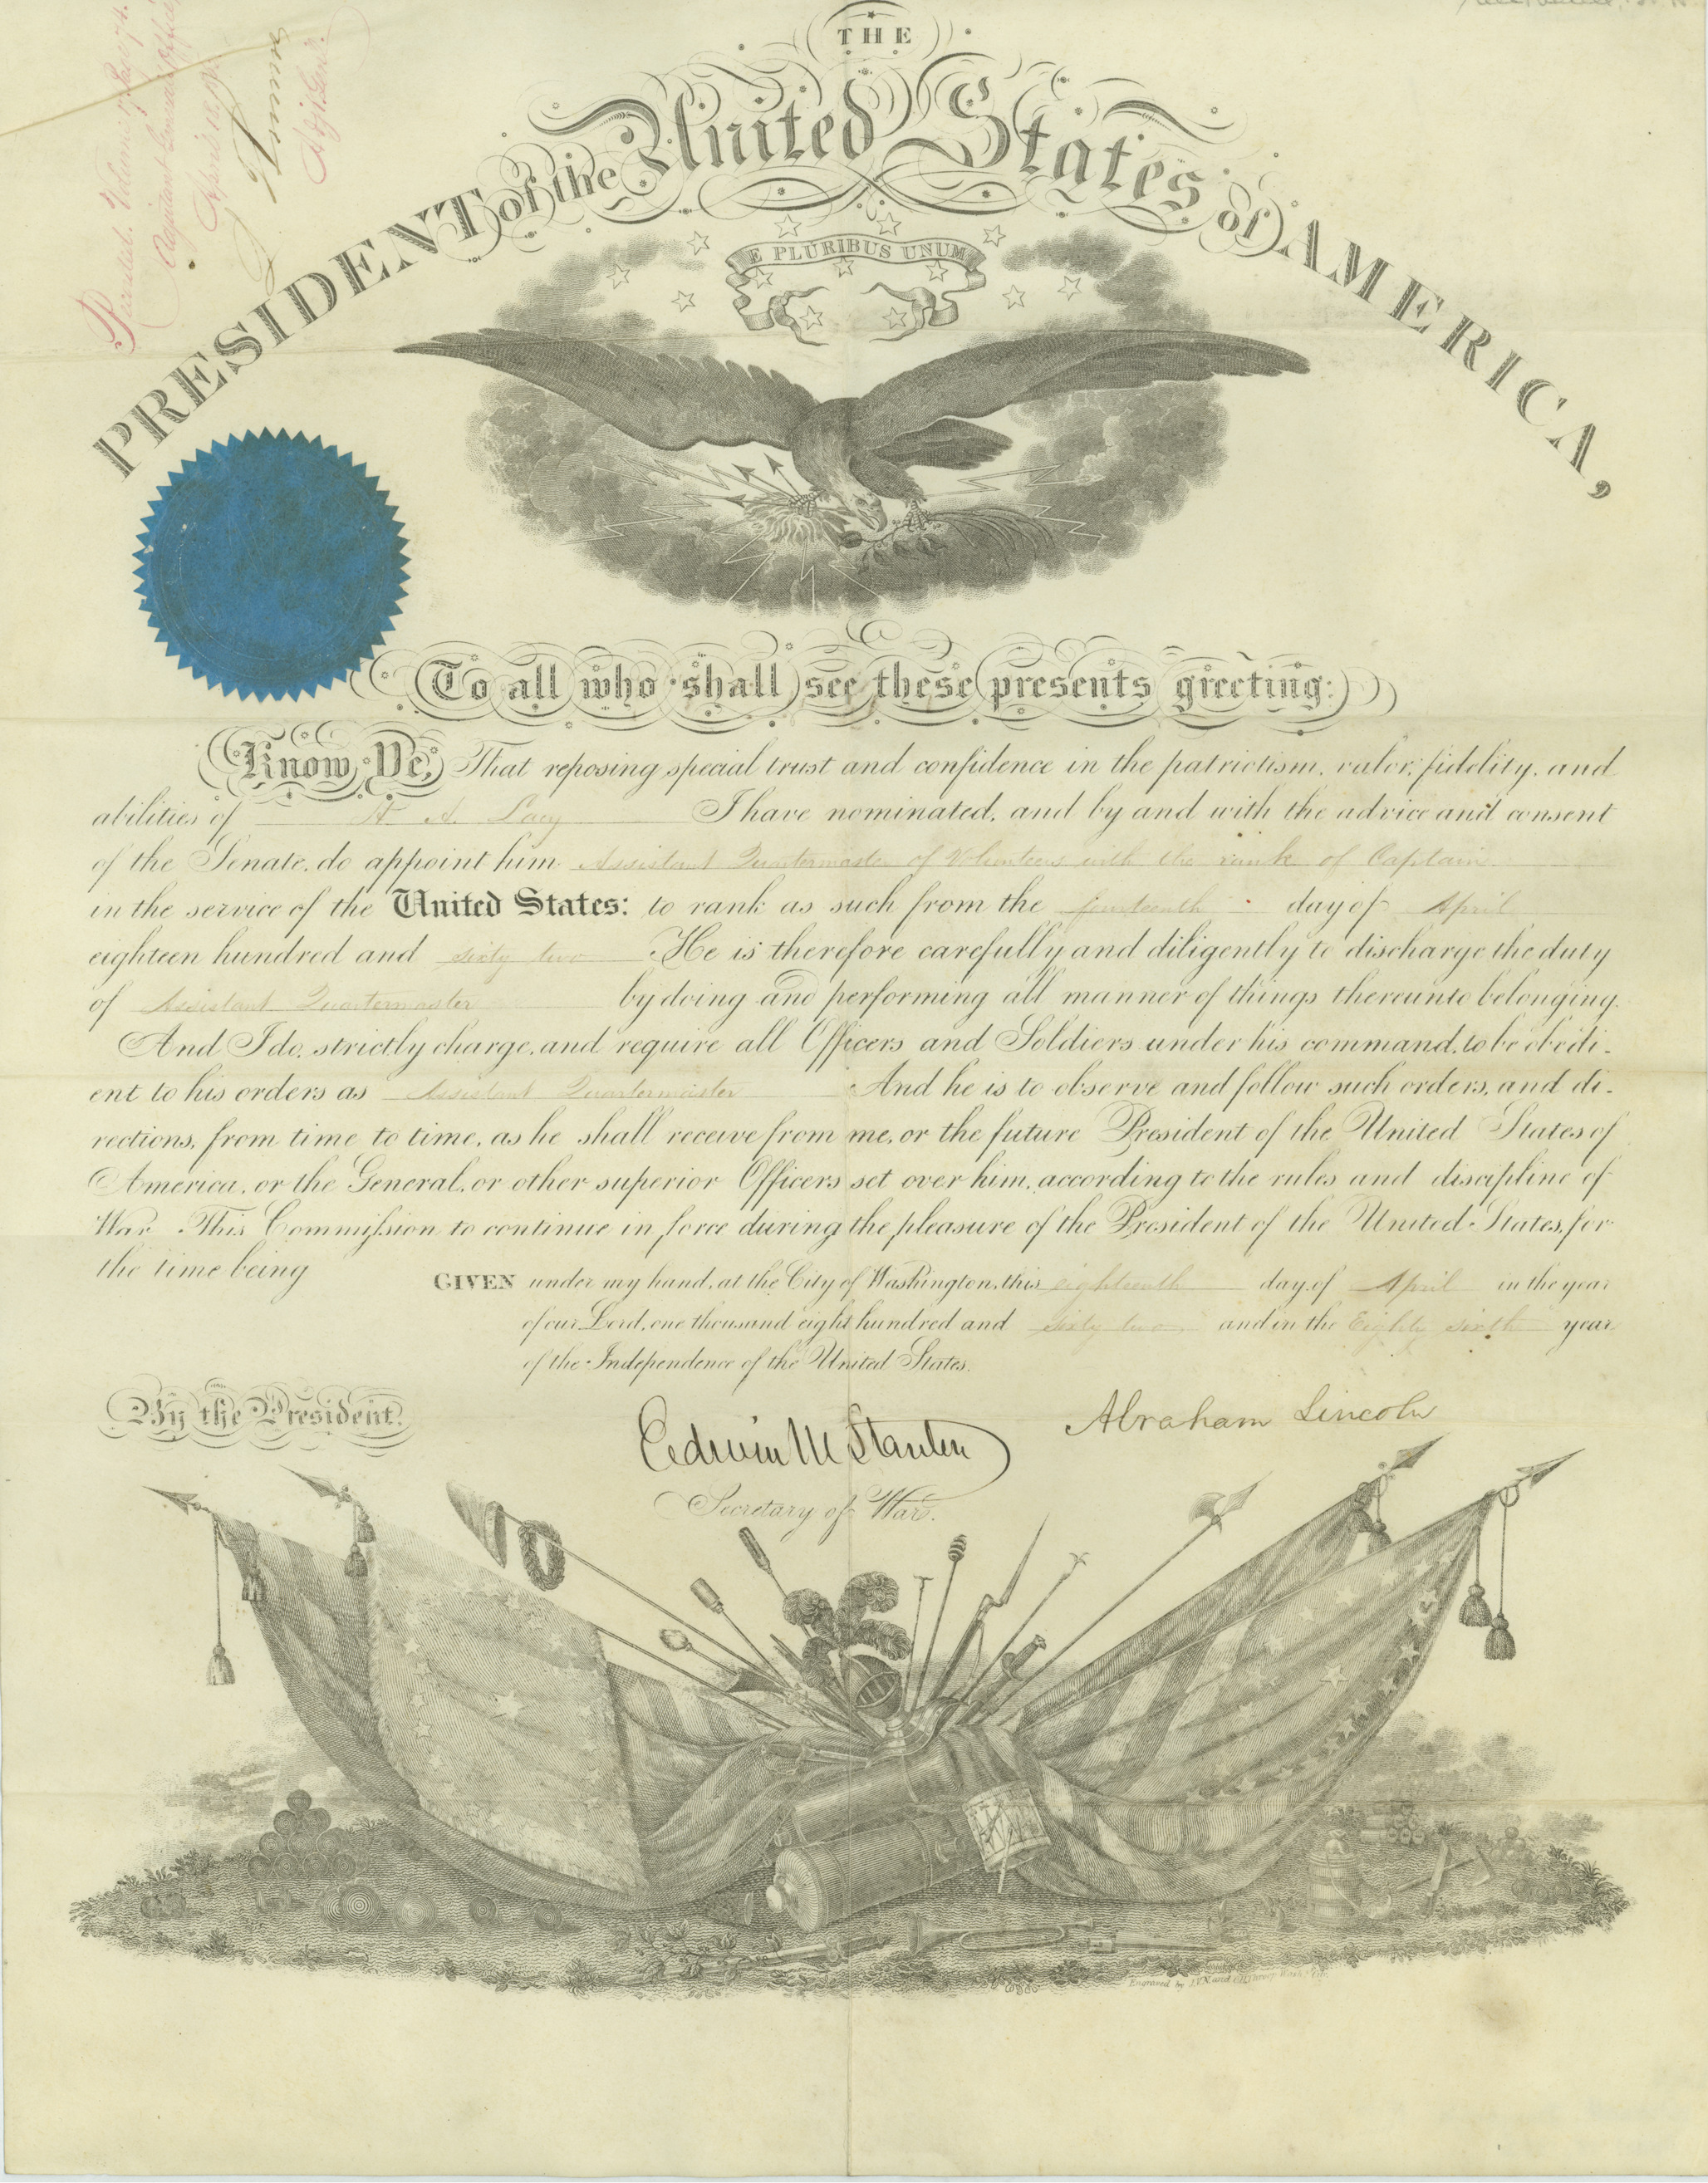 THE
PRESIDENT of the United States of AMERICA,
E PLURIBUS UNUM
Adjutant General's Office
April 18, 1862
Thomas
Adjt. Genl.
To all who shall see these presents greeting:
Know Ye, That reposing special trust and confidence in the patriotism, valor, fidelity, and
abilities of A. Lacy I have nominated, and by and with the advice and consent
of the Senate, do appoint him Assistant Quartermaster of Volunteers with the rank of Captain
in the service of the United States: to rank as such from the fourteenth day of April
eighteen hundred and sixty two He is therefore carefully and diligently to discharge the duty
of Assistant Quartermaster by doing and performing all manner of things thereunto belonging.
And I do, strictly charge, and require all Officers and Soldiers under his command, to be obedi-
ent to his orders as Assistant Quartermaster And he is to observe and follow such orders, and di-
rections, from time to time, as he shall receive from me, or the future President of the United States of
America, or the General, or other superior Officers set over him, according to the rules and discipline of
War. This Commission to continue in force during the pleasure of the President of the United States, for
the time being
GIVEN under my hand, at the City of Washington, this eighteenth day of April in the year
of our Lord, one thousand eight hundred and sixty two and in the Eighty sixth year
of the Independence of the United States.
By the President.
Abraham Lincoln
Edwin M Stanton
Secretary of War.
Engraved by